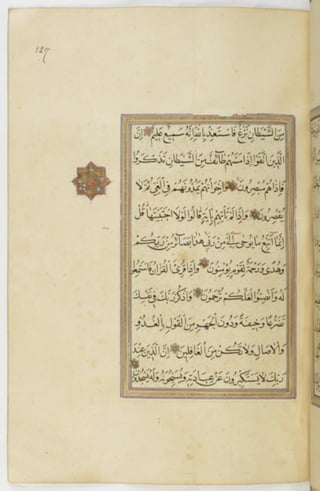 127
مِنَ الشَّيْطَانِ نَزْغٌ فَاسْتَعِذْ بِاللّٰهِ إِنَّهُ سَمِيعٌ عَلِيمٌ إِنَّ
الَّذِينَ اتَّقَوْا إِذَا مَسَّهُمْ طَائِفٌ مِنَ الشَّيْطَانِ تَذَكَّرُوا
فَإِذَا هُمْ مُبْصِرُونَ وَإِخْوَانُهُمْ يَمُدُّونَهُمْ فِي الْغَيِّ ثُمَّ لَا
يُقْصِرُونَ وَإِذَا لَمْ تَأْتِهِمْ بِآيَةٍ قَالُوا لَوْلَا اجْتَبَيْتَهَا قُلْ
إِنَّمَا أَتَّبِعُ مَا يُوحَى إِلَيَّ مِنْ رَبِّي هٰذَا بَصَائِرُ مِنْ رَبِّكُمْ
وَهُدًى وَرَحْمَةٌ لِقَوْمٍ يُؤْمِنُونَ وَإِذَا قُرِئَ الْقُرْآنُ فَاسْتَمِعُوا
لَهُ وَأَنْصِتُوا لَعَلَّكُمْ تُرْحَمُونَ وَاذْكُرْ رَبَّكَ فِي نَفْسِكَ
تَضَرُّعًا وَخِيفَةً وَدُونَ الْجَهْرِ مِنَ الْقَوْلِ بِالْغُدُوِّ
وَالْآصَالِ وَلَا تَكُنْ مِنَ الْغَافِلِينَ إِنَّ الَّذِينَ عِنْدَ
رَبِّكَ لَا يَسْتَكْبِرُونَ عَنْ عِبَادَتِهِ وَيُسَبِّحُونَهُ وَلَهُ يَسْجُدُونَ